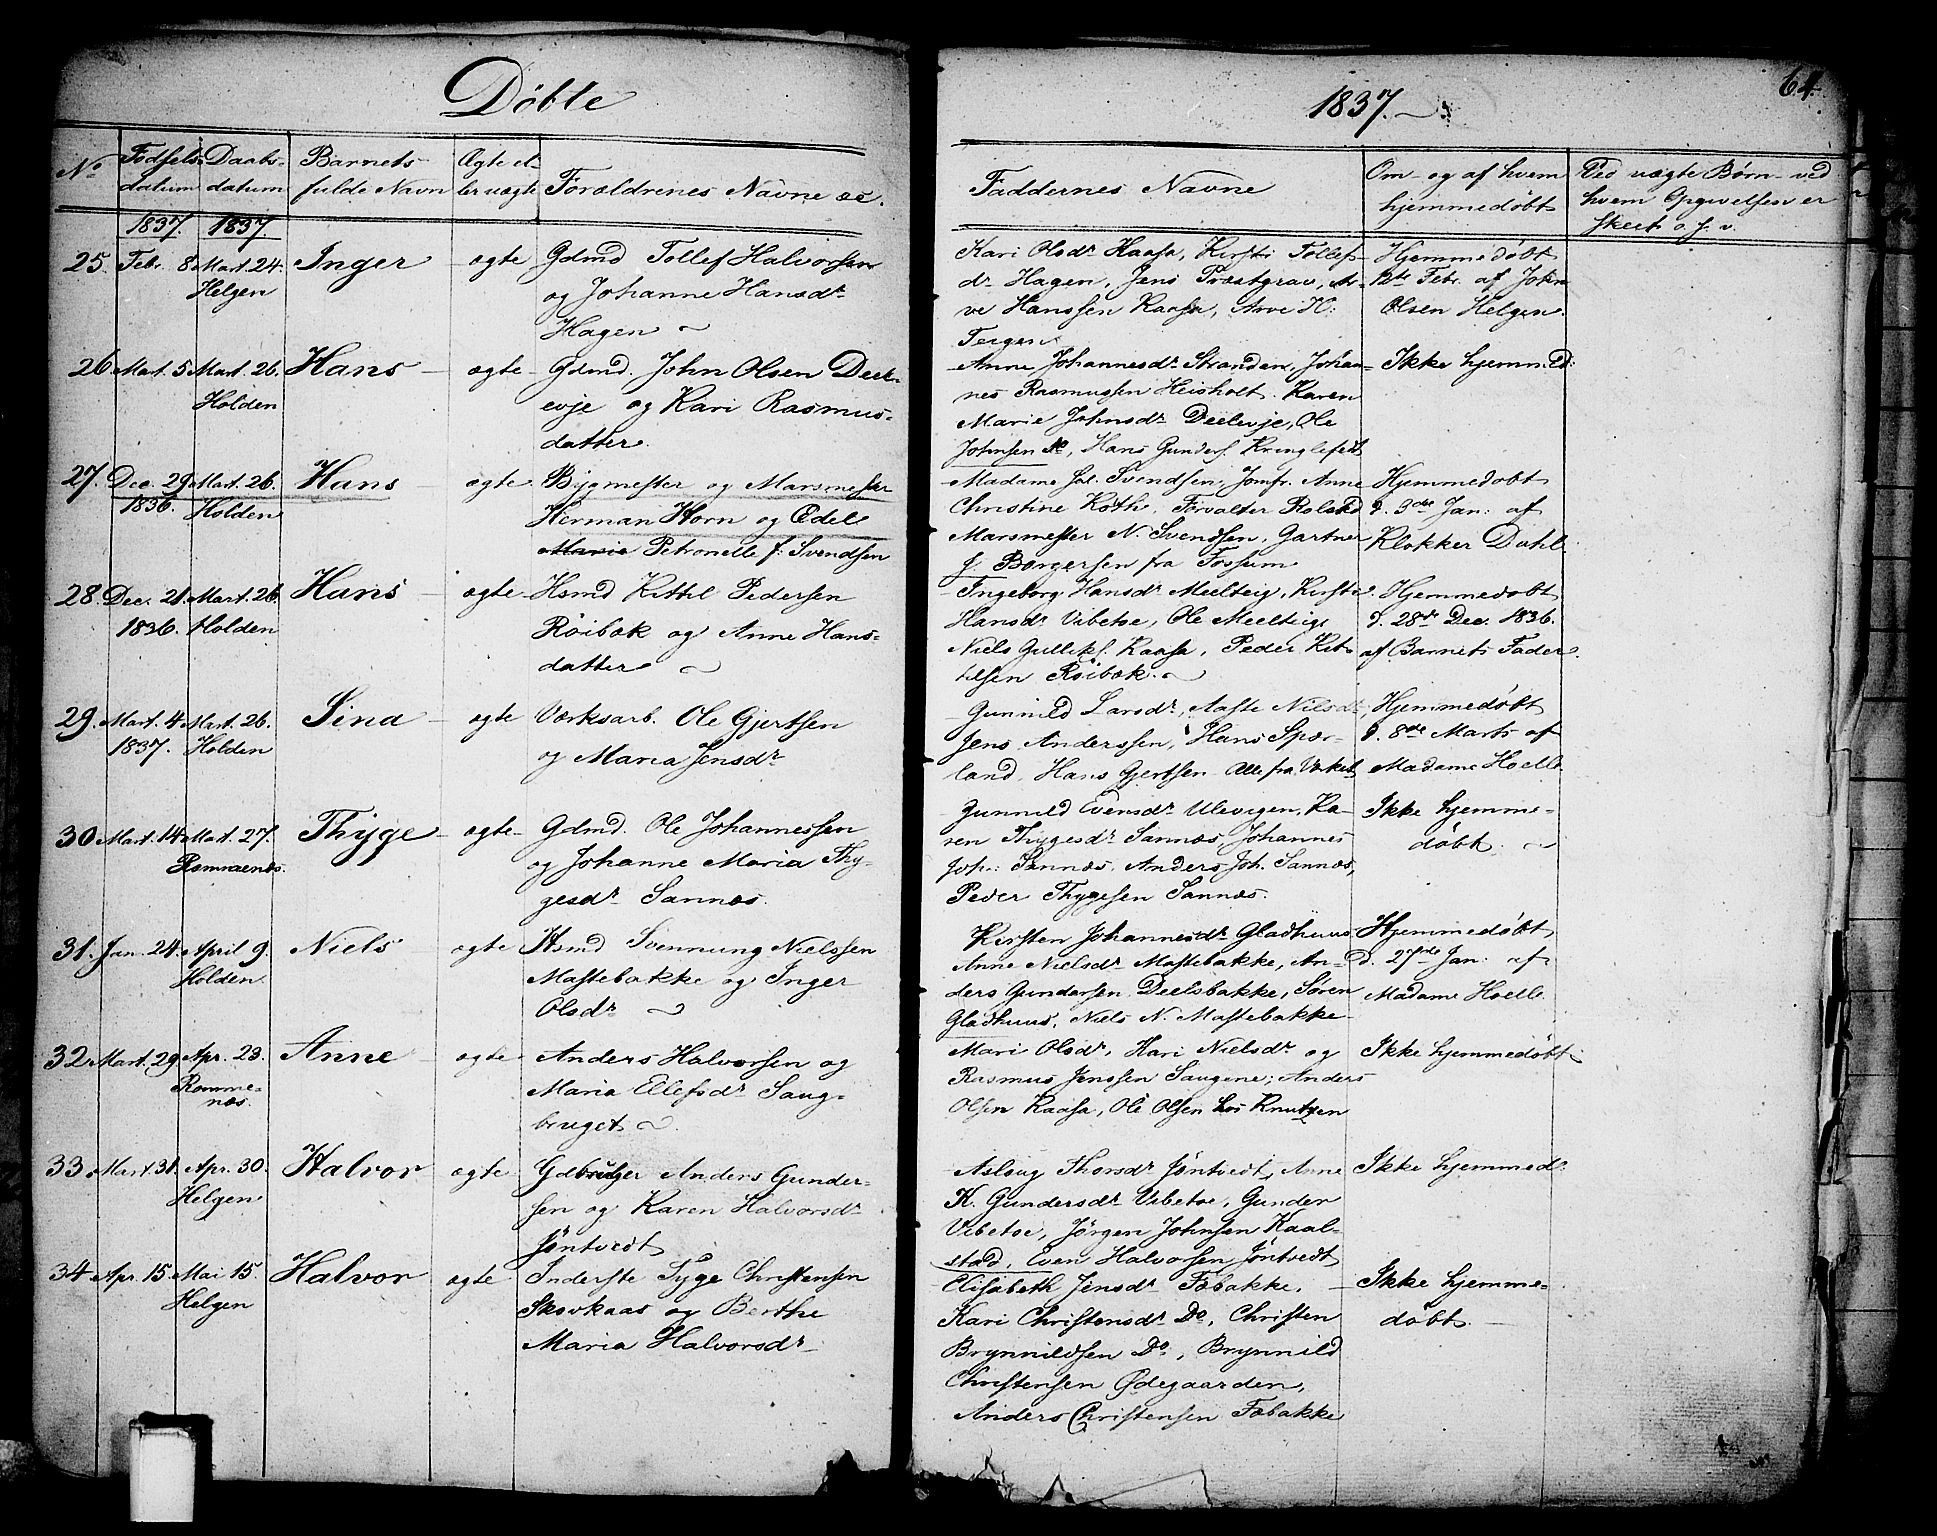 Döbte
1837.
64
No
Födsels-
datum
Daabs-
datum
Barnets
fulde Navn
Ægte el-
ler uægte
Forældrenes Navne &c.
Faddernes Navne
Om- og af hvem
hjemmedöbt
Ved uægte Børn- ved
hvem Opgivelsen er
skeet o. s. v.
1837. 1837
25. Febr. 8. Mart. 24.
Helgen
Inger
ægte
Gdmd Tollef Halvorsen
og Johanne Hansdr
Hagen
Kari Olsdr Kaasa, Kirsti Tollefs-
dr Hagen, Jens Præstgrav, Ar-
ve Hanssen Kaasa, Arve H:
Teigen
Hjemmedöbt
12te Febr. af John
Olsen Helgen
26 Mart. 5 Mart. 26.
Holden
Hans
ægte
Gdmd. John Olsen Deel-
evje og Kari Rasmus-
datter.
Anne Johannesdr Stranden, Johan-
nes Rasmussen Heisholt. Karen
Marie Johnsdr Deelevje, Ole
Johnsen do, Hans Gunders. Kringlefedt
Ikke hjemmed:
27. Dec. 29 Mart. 26.
1836. Holden
Hans
ægte
Bygmester og Marsmester
Herman Horn og Edel
Marie Petronelle f: Svendsen
Madame Svendsen, Jomfr. Anne
Christine Koth. Forvalter Rolsted
Marsmester N. Svendsen, Gartner
J. Borgersen fra Fossum
Hjemmedöbt
d. 3die Jan: af
Klokker Dahl
28. Dec. 21. Mart. 26
1836. Holden
Hans
ægte
Hsmd Kittil Pedersen
Röibæk og Anne Hans-
datter
Ingeborg Hansdr Meelteig, Kirsti
Hansdr Vibetoe, Ole Meelteig
Niels Galleks. Kaasa, Peder Kit-
telsen Röibæk.
Hjemmedöbt
d. 28de Dec. 1836.
af Barnets Fader.
29. Mart. 4 Mart. 26.
1837. Holden
Sina
ægte
Værksarb. Ole Gjertsen
og Maria Jensdr
Gunnild Larsdr, Aaste Nielsdr,
Jens Anderssen, Hans Spor-
land, Hans Gjertsen Alle fra Værket,
Hjemmedöbt
d. 8de Marts af
Madame Hoelle
30 Mart. 14 Mart. 27.
Romnaenæs.
Thyge
ægte
Gdmd. Ole Johannessen
og Johanne Maria Thy-
gesdr Sannæs.
Gunnild Evensdr Ulevigen, Ka-
ren Thygesdr Sannæs, Johannes
Joh: Sannæs, Anders Joh. Sannæs,
Peder Thygesen Sannæs.
Ikke hjemme-
döbt.
31. Jan. 24. April 9.
Holden.
Niels
ægte
Hsmd Svennung Nielssen
Mastebakke og Inger
Olsdr
Kirsten Johannesdr Gladhuus
Anne Nielsdr Mastebakke, An-
ders Gundersen Deelsbakke, Søren
Gladhuus, Niels N. Mastebakke
Hjemmedöbt
d. 27de Jan: af
Madame Hoelle.
32 Mart. 29 Apr. 23.
Romme-
næs.
Anne
ægte
Anders Halvorsen og
Maria Ellefsdr Saug-
bruget
Mari Olsdr, Kari Nielsdr og
Rasmus Jenssen Saugene, Anders
Olsen Kaasa, Ole Olsen hos Knutzen
Ikke hjemmedöbt
33. Mart. 31. Apr. 30.
Helgen
Halvor
ægte
Gdbruger Anders Gunder-
sen og Karen Halvorsdr
Jöntvedt
Asloug Thorsdr Jöntvedt, Anne
K. Gundersdr Vibetoe, Gunder
Vibetoe, Jørgen Johnsen Kaal-
stad, Even Halvorsen Jöntvedt
Ikke hjemmed.
34 Apr. 15. Mai 15.
Helgen
Halvor
ægte
Inderste Syge Christensen
Skovkaas og Berthe
Maria Halvorsdr
Elisabeth Jensdr Fæbakke.
Kari Christensdr Do, Christen
Brynnildsen Do, Brynnild
Christensen Ødegaarden,
Anders Christensen Fæbakke
Ikke hjemme-
döbt.